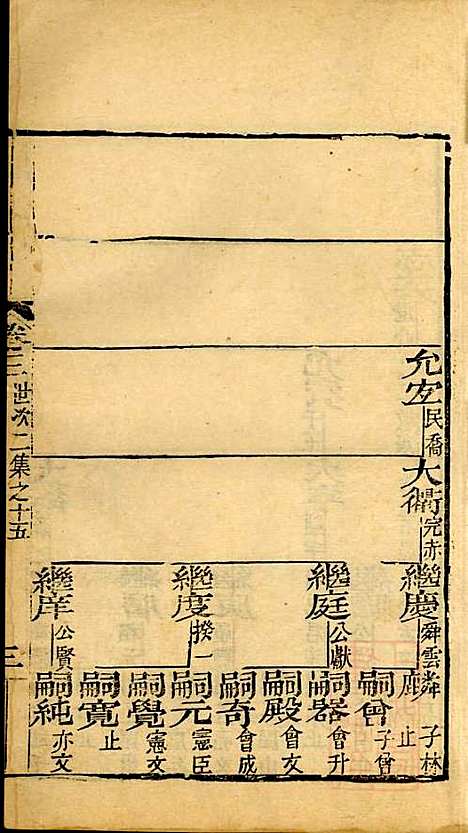 允安 民喬
大衢 完赤
繼慶 舜雲
麟 子林 止
嗣會 子會
繼庭 公獻
嗣器 會升
嗣殿 會友
嗣奇 會成
繼度 揆一
嗣元 憲臣
嗣覺 憲文
嗣寬 止
繼庠 公賢
嗣純 亦文
卷二 世次二集之十五
三